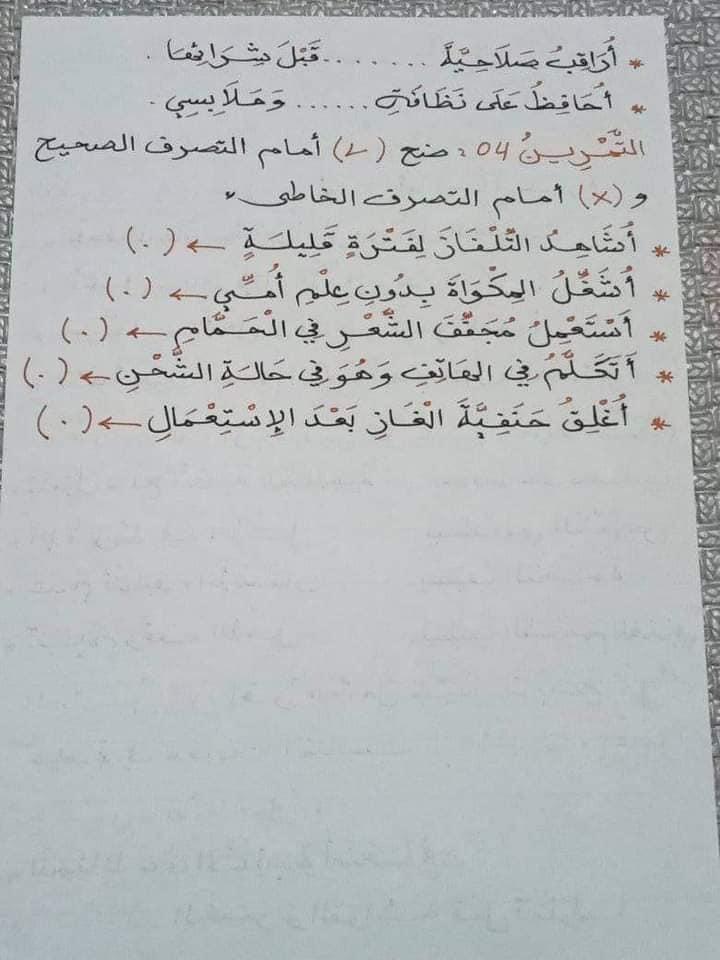 * أُرَاقِبُ صَلَاحِيَّةَ ........ قَبْلَ شِرَائِهَا .
* أُحَافِظُ عَلَى نَظَافَةِ ...... وَمَلَابِسِي .
التَّمْرِينُ 04 : ضع (✓) أمام التصرف الصحيح
و (×) أمام التصرف الخاطئ
* أُشَاهِدُ التِّلْفَازَ لِفَتْرَةٍ قَلِيلَةٍ ← (.)
* أُشَغِّلُ المِكْوَاةَ بِدُونِ عِلْمِ أُمِّي ← (.)
* أَسْتَعْمِلُ مُجَفِّفَ الشَّعْرِ فِي الْحَمَّامِ ← (.)
* أَتَكَلَّمُ فِي الهَاتِفِ وَهُوَ فِي حَالَةِ الشَّحْنِ ← (.)
* أُغْلِقُ حَنَفِيَّةَ الْغَازِ بَعْدَ الإِسْتِعْمَالِ ← (.)